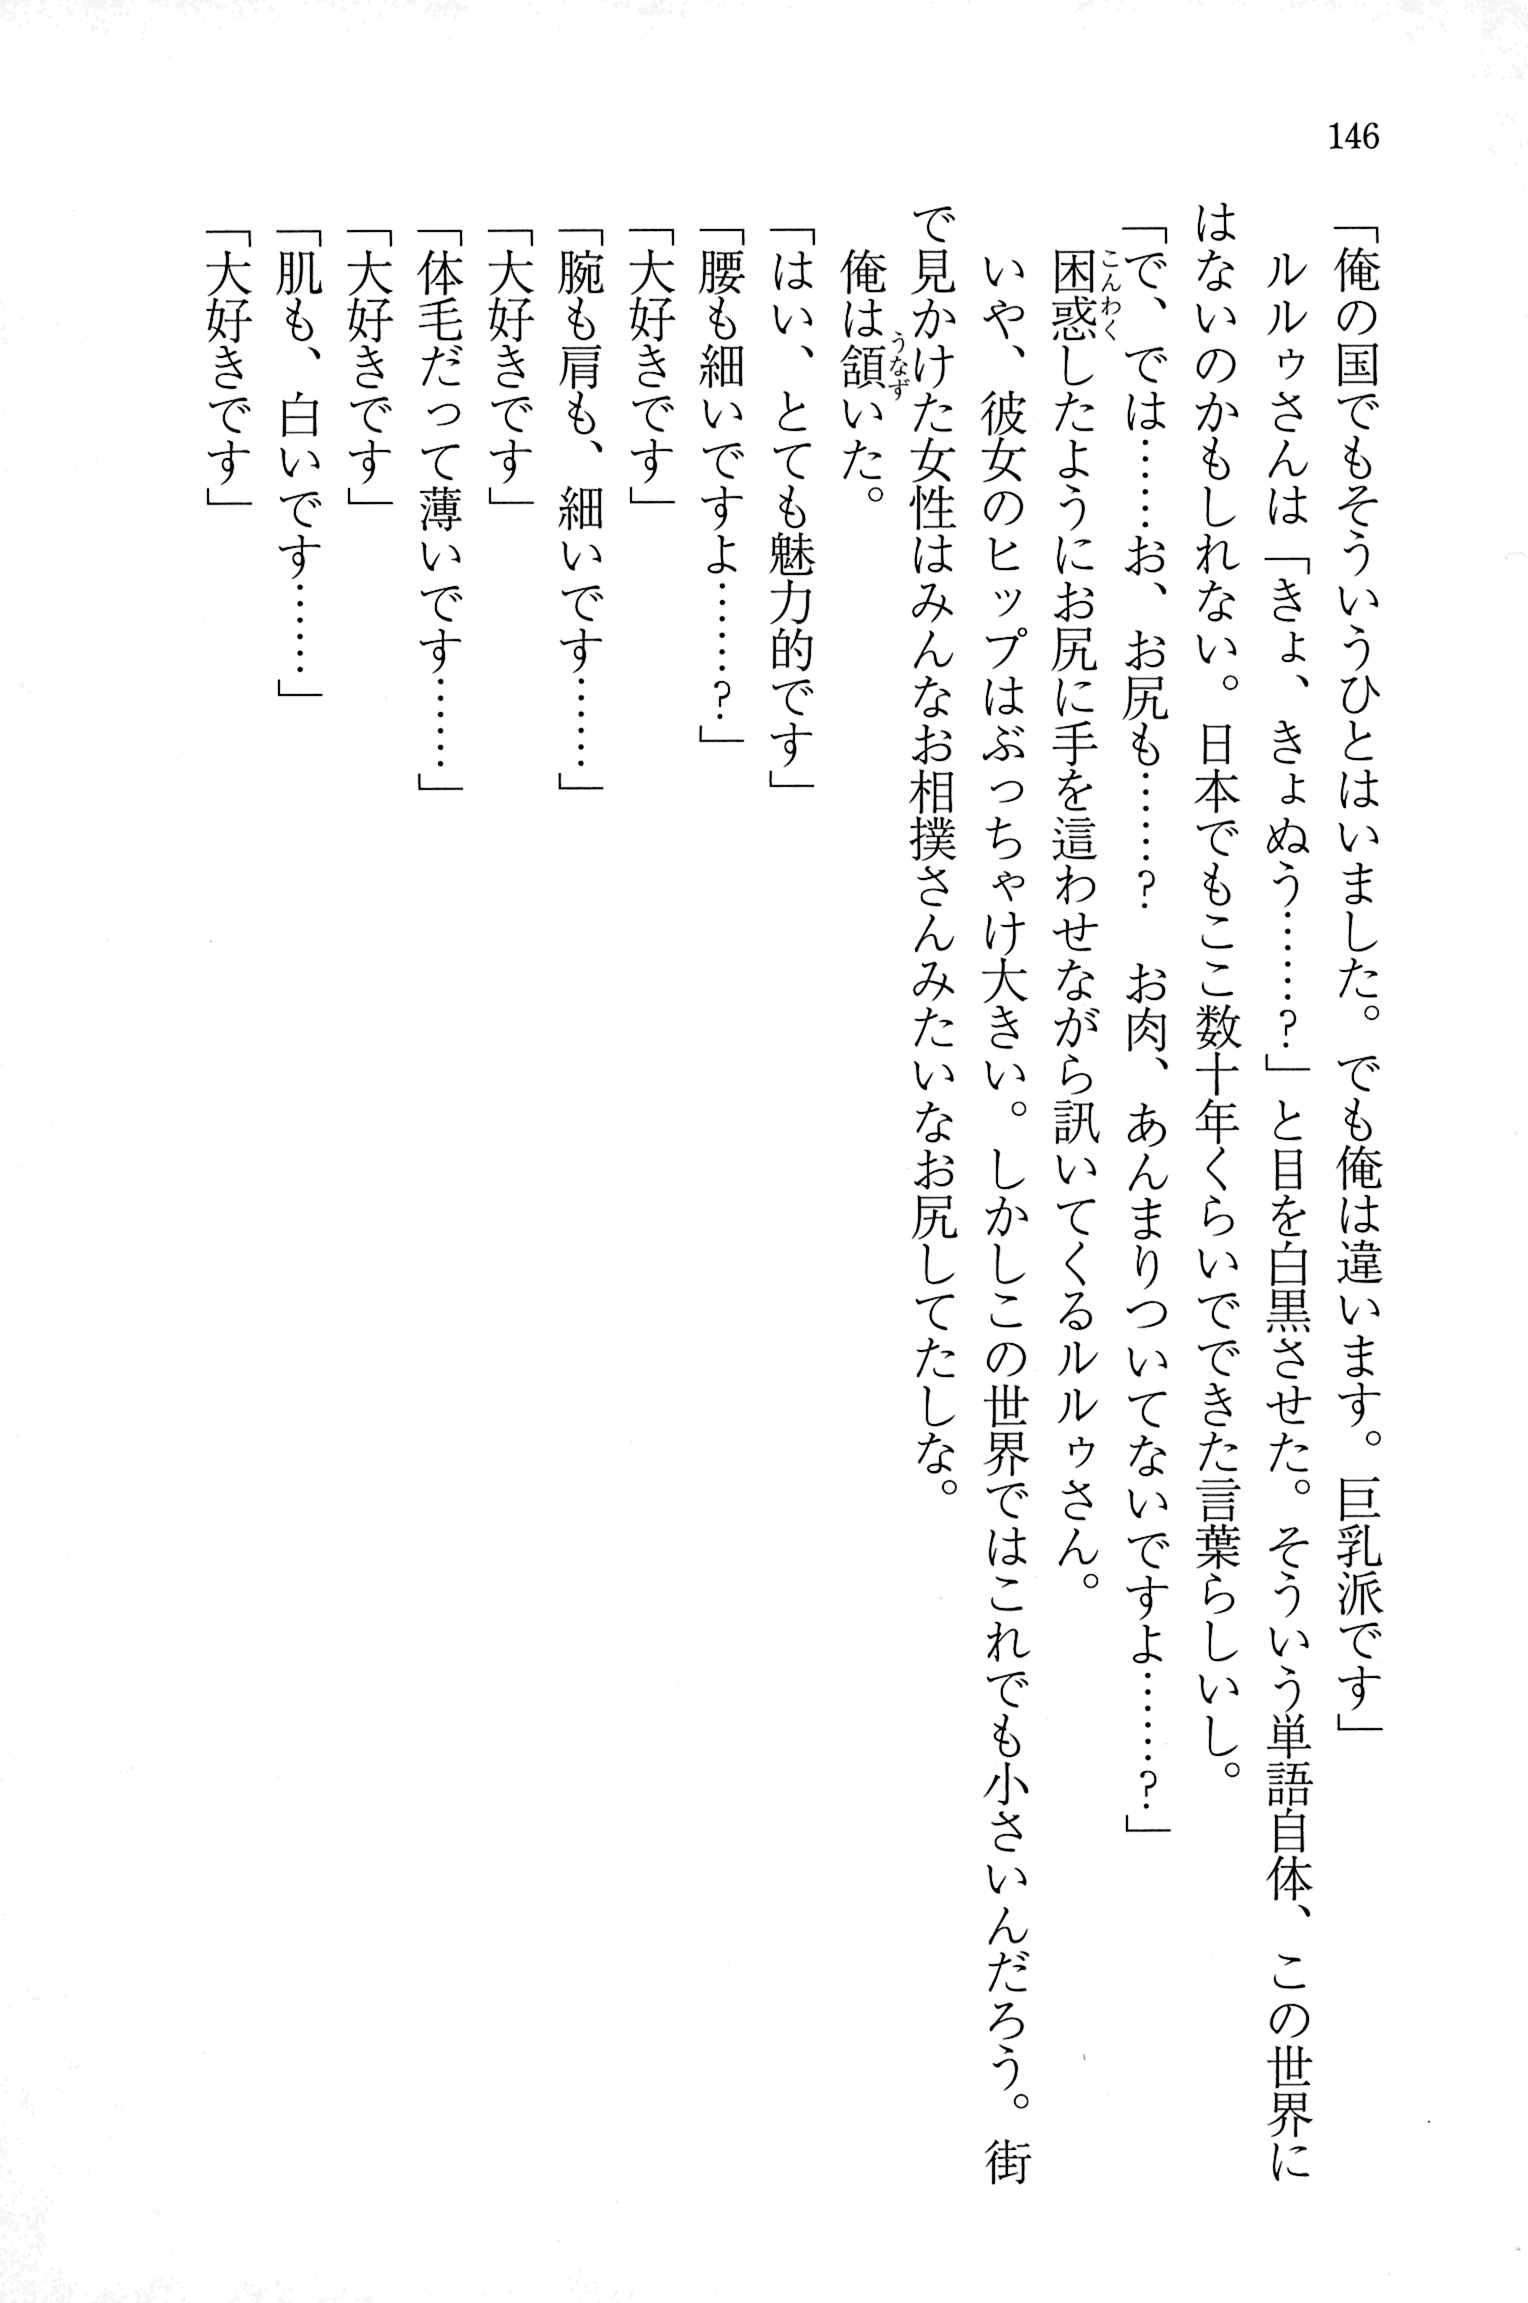 146
「俺の国でもそういうひとはいました。でも俺は違います。巨乳派です」
ルルゥさんは「きょ、きょぬう……？」と目を白黒させた。そういう単語自体、この世界に
はないのかもしれない。日本でもここ数十年くらいでできた言葉らしいし。
「で、では……お、お尻も……？　お肉、あんまりついてないですよ……？」
困惑したようにお尻に手を這わせながら訊いてくるルルゥさん。
いや、彼女のヒップはぶっちゃけ大きい。しかしこの世界ではこれでも小さいんだろう。街
で見かけた女性はみんなお相撲さんみたいなお尻してたしな。
俺は頷いた。
「はい、とても魅力的です」
「腰も細いですよ……？」
「大好きです」
「腕も肩も、細いです……」
「大好きです」
「体毛だって薄いです……」
「大好きです」
「肌も、白いです……」
「大好きです」